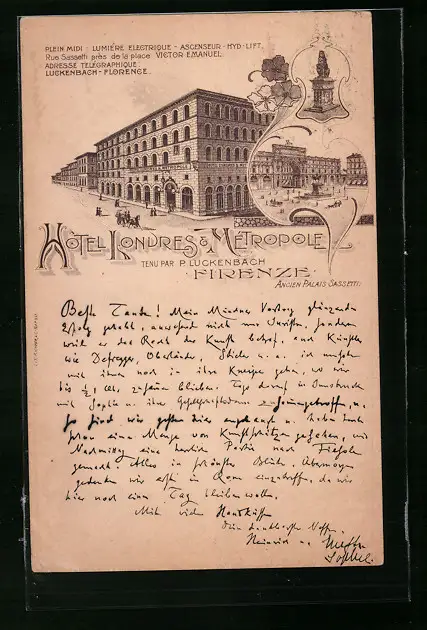 PLEIN MIDI - LUMIÈRE ELECTRIQUE - ASCENSEUR - HYD-LIFT.
Rue Sassetti près de la place VICTOR EMANUEL
ADRESSE TÉLÉGRAPHIQUE
LUCKENBACH - FLORENCE
HÔTEL LONDRES & MÉTROPOLE
TENU PAR P. LUCKENBACH
FIRENZE
ANCIEN PALAIS SASSETTI
Beste Tante! Mein Münchner Vortrag glänzenden
Erfolg gehabt, nicht nur Juristen, sondern
weil er das Recht der Kunst betraf, auch Künstler
wie Defregger, u. a. ich
mit ihnen noch in ihre Kneipe gehen, wo wir
bis ½ Uhr, zusammen blieben. Tags darauf in Innsbruck
mit Sophie u. ihrer zusammengetroffen, u.
so sind wir gestern hier u. haben heute
schon eine Menge von Kunstschätzen gesehen, und
Nachmittag eine herrliche Partie nach Fiesole
gemacht. Alles in schönster Blüte. Übermorgen
gedenken wir erst in Rom einzutreffen, da wir
hier noch einen Tag bleiben wollen.
Mit vielen Handküssen
Dein dankbarster Neffe
Heinrich u.
Sophie.